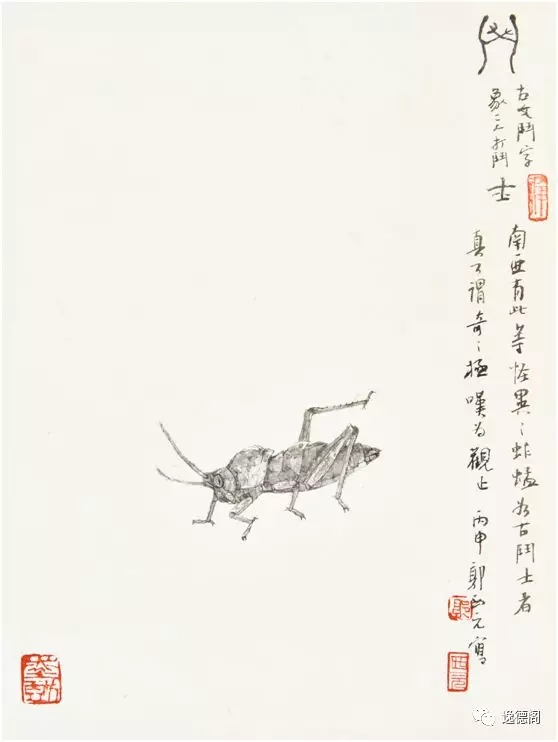 鬥
古文鬥字
象二人打鬥
士
南亜有此等怪異之蚱蜢古鬥士者
真可謂奇之極嘆為觀止 丙申郭西元寫
逸德阁